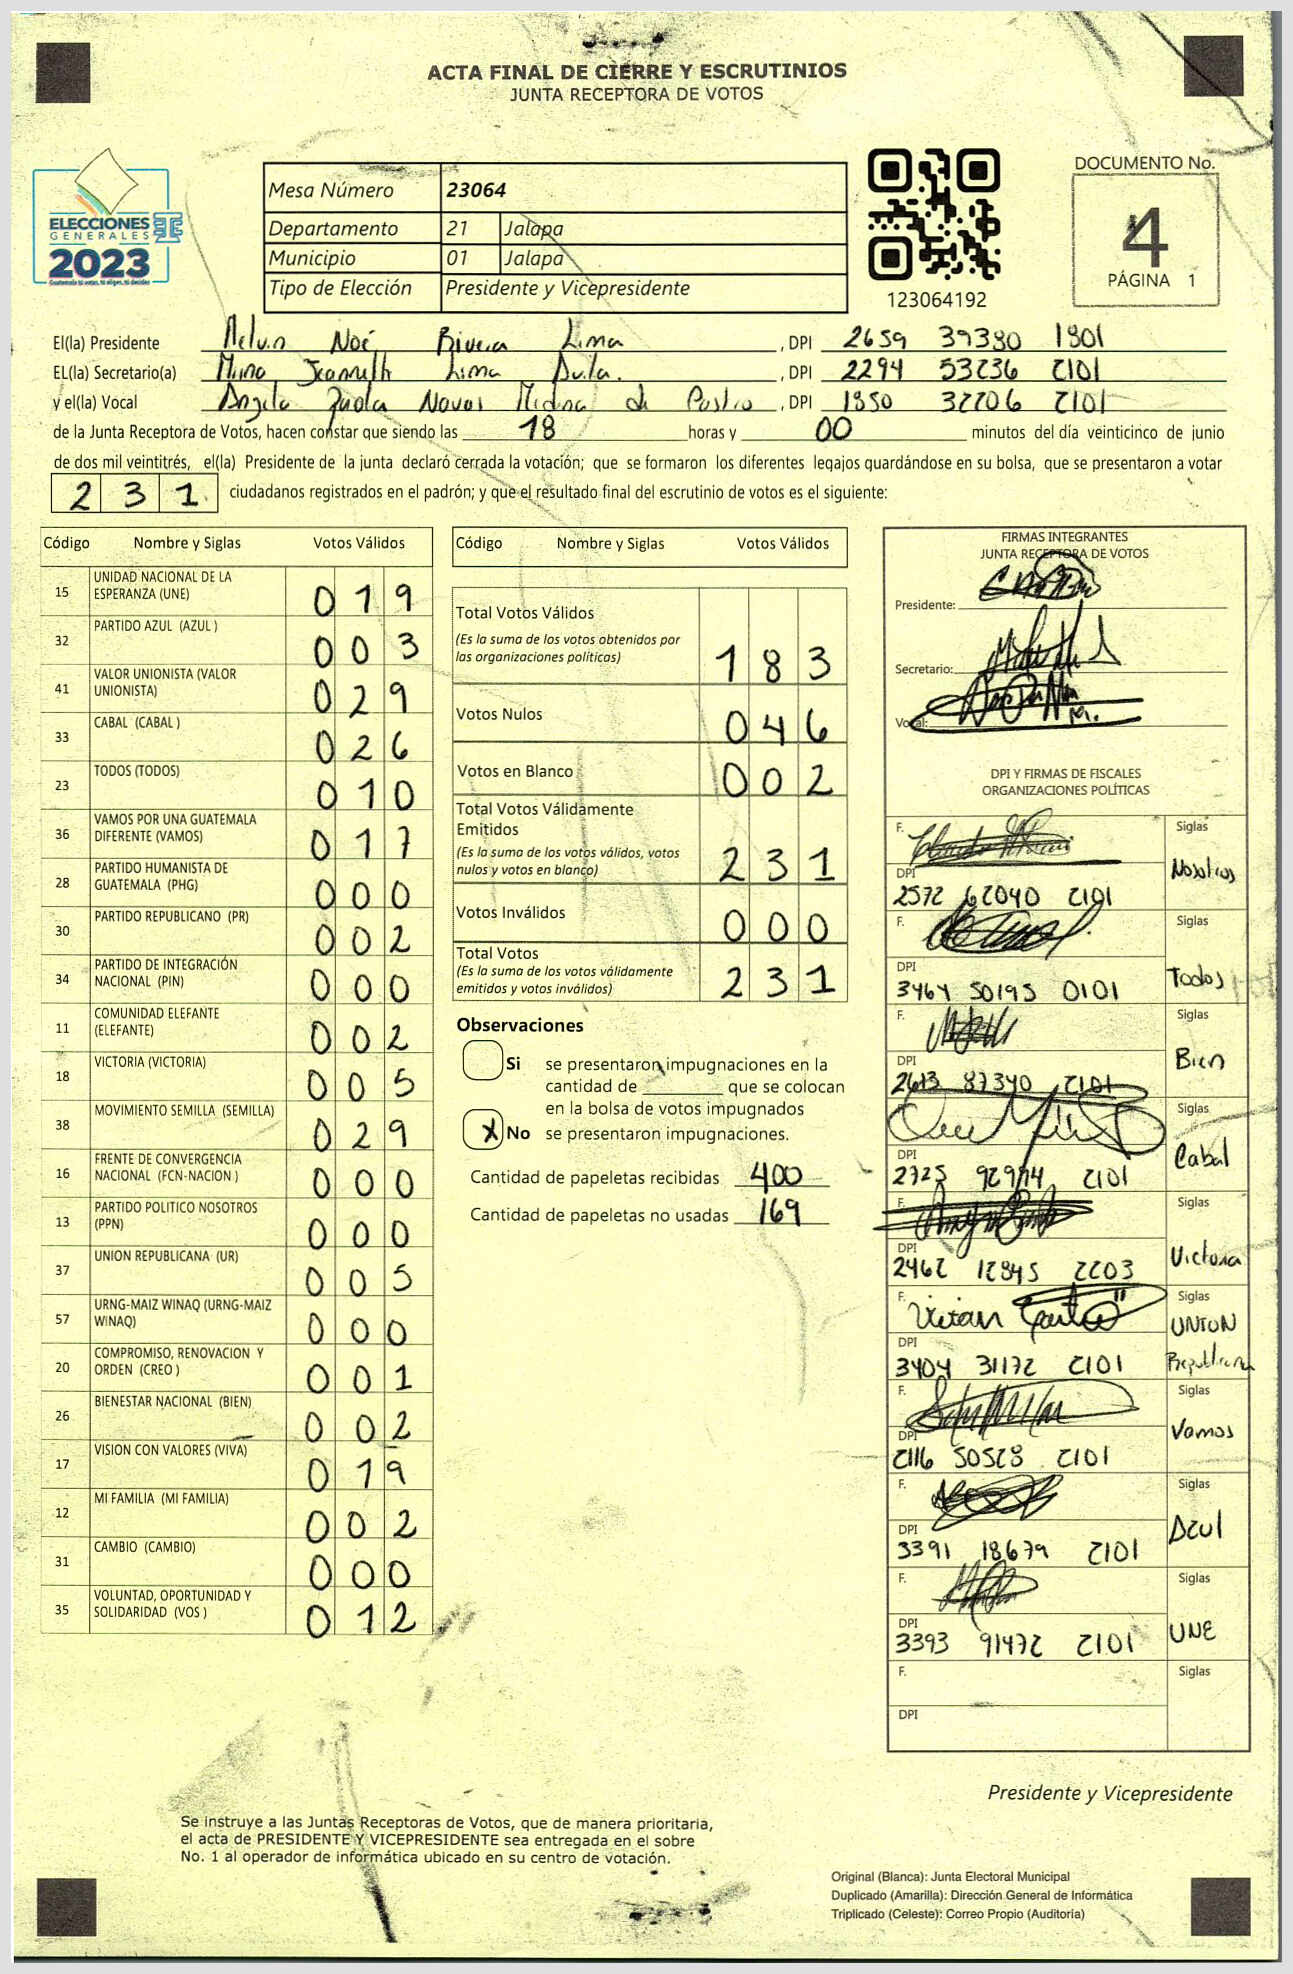 ACTA FINAL DE CIERRE Y ESCRUTINIOS
JUNTA RECEPTORA DE VOTOS
ELECCIONES
GENERALES
2023
Mesa Número 23064
Departamento 21 Jalapa
Municipio 01 Jalapa
Tipo de Elección Presidente y Vicepresidente
123064192
DOCUMENTO No.
4
PÁGINA 1
El(la) Presidente Melvin Noé Rivera Lima , DPI 2659 39380 1801
EL(la) Secretario(a) Lima , DPI 2294 53236 2101
y el(la) Vocal Medina de , DPI 1850 32206 2101
de la Junta Receptora de Votos, hacen constar que siendo las 18 horas y 00 minutos del día veinticinco de junio
de dos mil veintitrés, el(la) Presidente de la junta declaró cerrada la votación; que se formaron los diferentes legajos guardándose en su bolsa, que se presentaron a votar
231 ciudadanos registrados en el padrón; y que el resultado final del escrutinio de votos es el siguiente:
Código Nombre y Siglas Votos Válidos
15 UNIDAD NACIONAL DE LA ESPERANZA (UNE) 019
32 PARTIDO AZUL (AZUL ) 003
41 VALOR UNIONISTA (VALOR UNIONISTA) 029
33 CABAL (CABAL ) 026
23 TODOS (TODOS) 010
36 VAMOS POR UNA GUATEMALA DIFERENTE (VAMOS) 017
28 PARTIDO HUMANISTA DE GUATEMALA (PHG) 000
30 PARTIDO REPUBLICANO (PR) 002
34 PARTIDO DE INTEGRACIÓN NACIONAL (PIN) 000
11 COMUNIDAD ELEFANTE (ELEFANTE) 002
18 VICTORIA (VICTORIA) 005
38 MOVIMIENTO SEMILLA (SEMILLA) 029
16 FRENTE DE CONVERGENCIA NACIONAL (FCN-NACION ) 000
13 PARTIDO POLITICO NOSOTROS (PPN) 000
37 UNION REPUBLICANA (UR) 005
57 URNG-MAIZ WINAQ (URNG-MAIZ WINAQ) 000
20 COMPROMISO, RENOVACION Y ORDEN (CREO ) 001
26 BIENESTAR NACIONAL (BIEN) 002
17 VISION CON VALORES (VIVA) 019
12 MI FAMILIA (MI FAMILIA) 002
31 CAMBIO (CAMBIO) 000
35 VOLUNTAD, OPORTUNIDAD Y SOLIDARIDAD (VOS ) 012
Código Nombre y Siglas Votos Válidos
Total Votos Válidos
(Es la suma de los votos obtenidos por las organizaciones políticas) 183
Votos Nulos 046
Votos en Blanco 002
Total Votos Válidamente Emitidos
(Es la suma de los votos válidos, votos nulos y votos en blanco) 231
Votos Inválidos 000
Total Votos
(Es la suma de los votos válidamente emitidos y votos inválidos) 231
Observaciones
Si se presentaron impugnaciones en la
cantidad de que se colocan
en la bolsa de votos impugnados
X No se presentaron impugnaciones.
Cantidad de papeletas recibidas 400
Cantidad de papeletas no usadas 169
FIRMAS INTEGRANTES
JUNTA RECEPTORA DE VOTOS
Presidente:
Secretario:
Vocal:
DPI Y FIRMAS DE FISCALES
ORGANIZACIONES POLÍTICAS
F. Siglas
DPI Nosotros
2572 62040 2101
F. Siglas
DPI Todos
3464 50195 0101
F. Siglas
DPI Bien
2613 87340 2101
Siglas
DPI Cabal
2725 2101
F. Siglas
DPI Victoria
2462 12845 2203
F. Siglas
DPI UNION Republicana
3404 31172 2101
F. Siglas
DPI Vamos
2116 50528 2101
F. Siglas
DPI Azul
3391 18679 2101
F. Siglas
DPI UNE
3393 91472 2101
F. Siglas
DPI
Presidente y Vicepresidente
Se instruye a las Juntas Receptoras de Votos, que de manera prioritaria,
el acta de PRESIDENTE Y VICEPRESIDENTE sea entregada en el sobre
No. 1 al operador de informática ubicado en su centro de votación.
Original (Blanca): Junta Electoral Municipal
Duplicado (Amarilla): Dirección General de Informática
Triplicado (Celeste): Correo Propio (Auditoria)